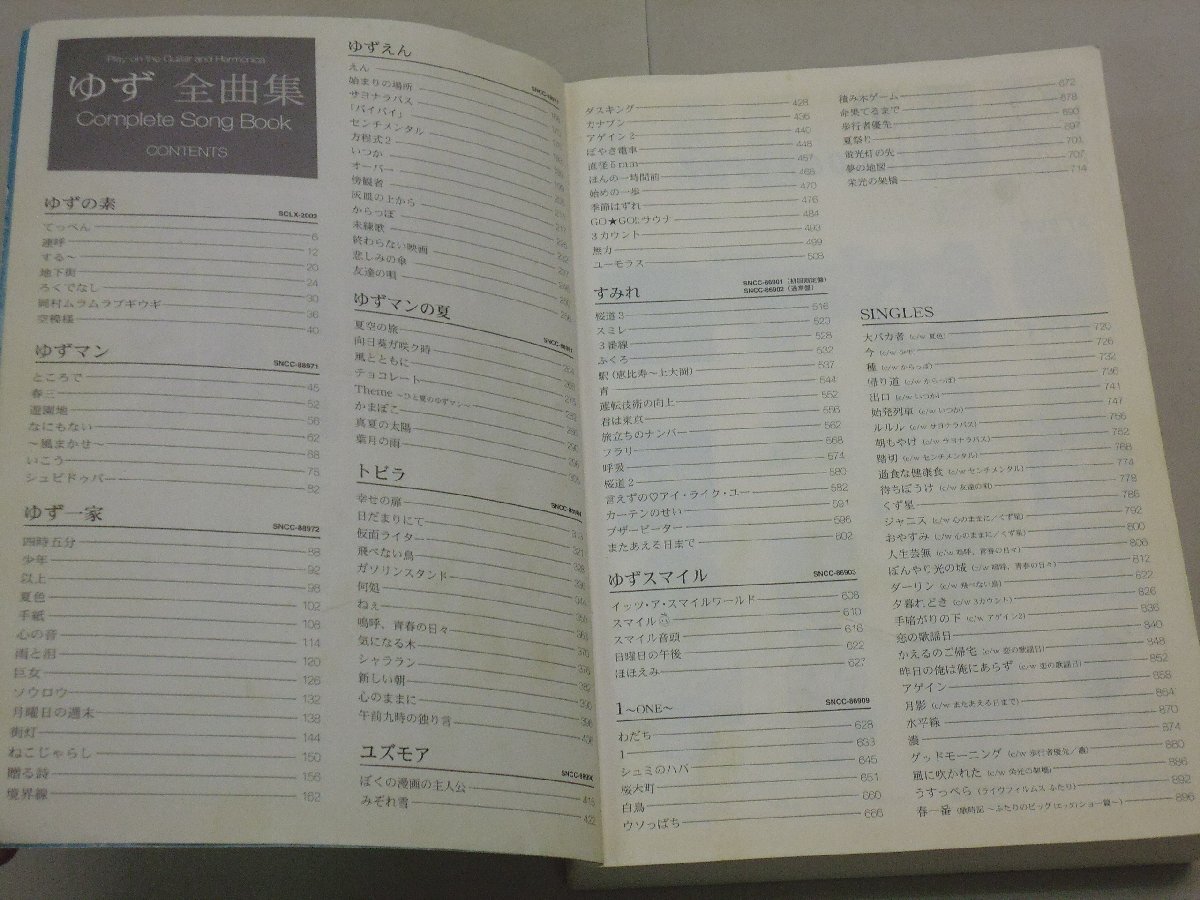 Play on the Guitar and Harmonica
ゆず 全曲集
Complete Song Book
CONTENTS
ゆずの素
SCLX-2003
てっぺん 6
連呼 12
する〜 20
地下街 24
ろくでなし 30
岡村ムラムラブギウギ 36
空模様 40
ゆずマン
SNCC-88971
ところで 45
春三 52
遊園地 56
なにもない 62
〜風まかせ〜 68
いこう 78
シュビドゥバー 82
ゆず一家
SNCC-88972
四時五分 88
少年 92
以上 98
夏色 102
手紙 108
心の音 114
雨と泪 120
巨女 126
ソウロウ 132
月曜日の週末 138
街灯 144
ねこじゃらし 150
贈る詩 156
境界線 162
ゆずえん
えん
始まりの場所
サヨナラバス
「バイバイ」
センチメンタル
方程式2
いつか
オーバー
傍観者
灰皿の上から
からっぽ
未練歌
終わらない映画
悲しみの傘
友達の唄
ゆずマンの夏
夏空の旅
向日葵ガ咲ク時
風とともに
チョコレート
Theme 〜ひと夏のゆずマン〜
かまぼこ
真夏の太陽
葉月の雨
トビラ
幸せの扉
日だまりにて
仮面ライター
飛べない鳥
ガソリンスタンド
何処
ねぇ
嗚呼、青春の日々
気になる木
シャララン
新しい朝
心のままに
午前九時の独り言
ユズモア
ぼくの漫画の主人公 415
みぞれ雪 422
ダスキング 428
カナブン 436
アゲイン2 440
ぼやき電車 448
直径5mm 457
ほんの一時間前 468
始めの一歩 470
季節はずれ 476
GO★GO!!サウナ 484
3カウント 493
無力 499
ユーモラス 503
すみれ
SNCC-86901（初回限定盤）
SNCC-86902（通常盤）
桜道3 516
スミレ 523
3番線 528
ふくろ 532
駅（恵比寿〜上大岡） 537
青 544
運転技術の向上 552
君は東京 556
旅立ちのナンバー 562
フラリ 568
呼吸 574
桜道2 580
言えずの♡アイ・ライク・ユー 582
カーテンのせい 591
ブザービーター 596
またあえる日まで 602
ゆずスマイル
SNCC-86903
イッツ・ア・スマイルワールド 608
スマイル 610
スマイル音頭 616
日曜日の午後 622
ほほえみ 627
1〜ONE〜
SNCC-86909
わだち 628
1 633
シュミのハバ 645
桜木町 651
白鳥 660
ウソっぱち 666
積み木ゲーム 672
命果てるまで 678
歩行者優先 690
夏祭り 697
蛍光灯の先 701
夢の地図 707
栄光の架橋 714
SINGLES
大バカ者（c/w 夏色） 720
今 726
種（c/w からっぽ） 732
帰り道（c/w からっぽ） 736
出口（c/w いつか） 741
始発列車（c/w いつか） 747
ルルル（c/w サヨナラバス） 756
朝もやけ（c/w サヨナラバス） 762
踏切（c/w センチメンタル） 768
過食な健康食（c/w センチメンタル） 774
待ちぼうけ（c/w 友達の唄） 778
くず星 786
ジャニス（c/w 心のままに／くず星） 792
おやすみ（c/w 心のままに／くず星） 800
人生芸無（c/w 嗚呼、青春の日々） 806
ぼんやり光の城（c/w 嗚呼、青春の日々） 812
ダーリン（c/w 飛べない鳥） 822
夕暮れどき（c/w 3カウント） 826
手暗がりの下（c/w アゲイン2） 836
恋の歌謡日 840
かえるのご帰宅（c/w 恋の歌謡日） 848
昨日の俺は俺にあらず（c/w 恋の歌謡日） 852
アゲイン 858
月影（c/w またあえる日まで） 864
水平線 870
濃 874
グッドモーニング（c/w 歩行者優先／濃） 880
風に吹かれた（c/w 栄光の架橋） 886
うすっぺら（ライヴフィルムス ふたり） 892
春一番（歌時記 〜ふたりのビッグ（エッグ）ショー篇〜） 896